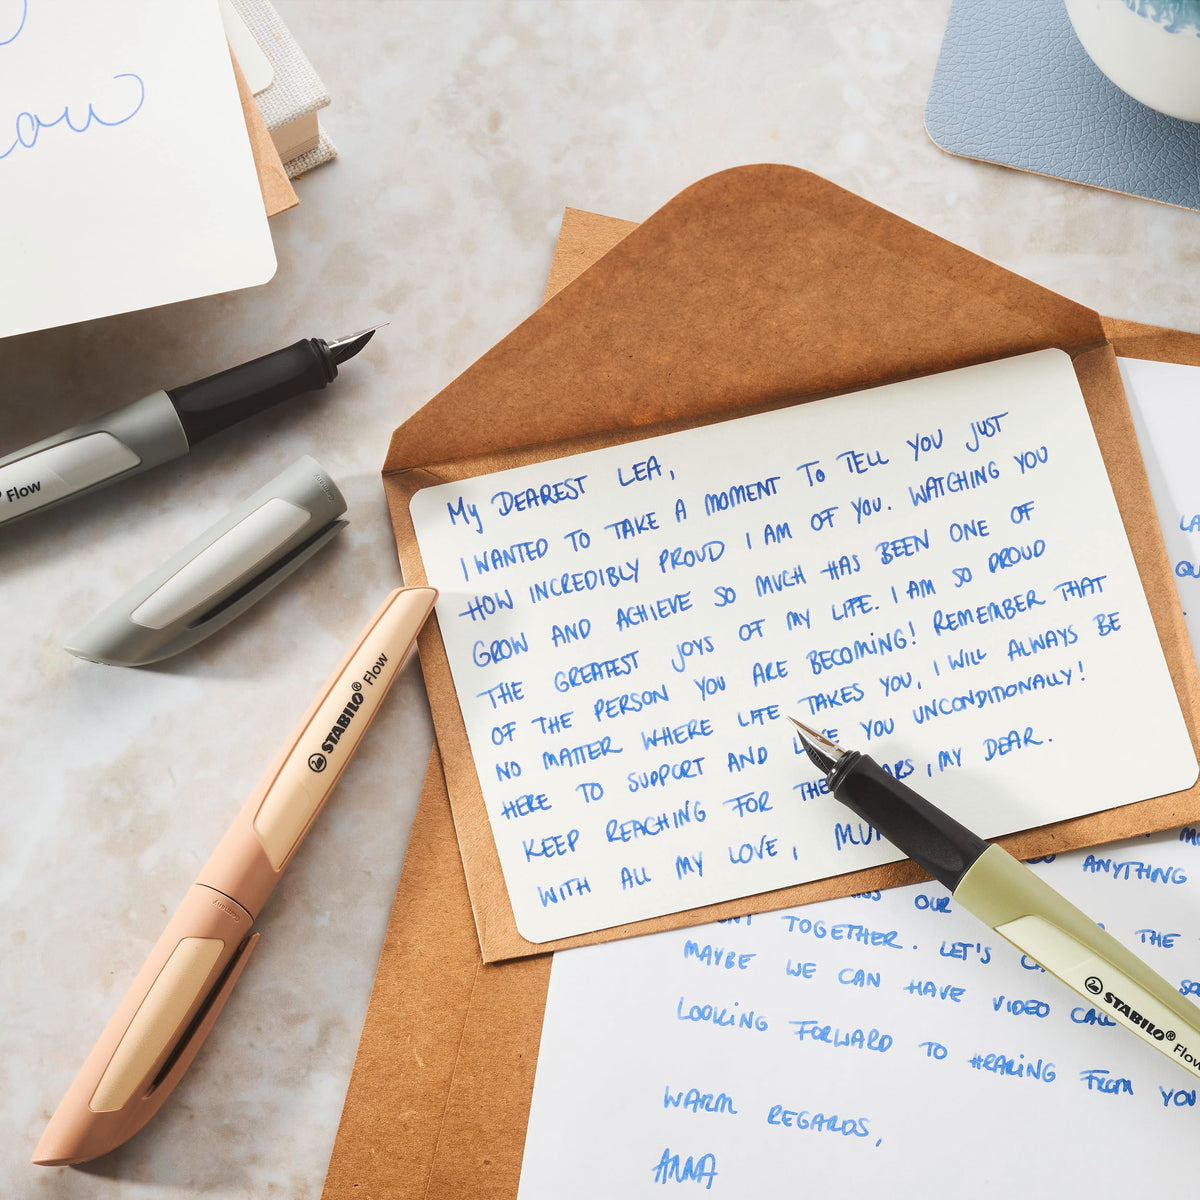 My DEAREST LEA,
I WANTED TO TAKE A MOMENT TO TELL YOU JUST
HOW INCREDIBLY PROUD I AM OF YOU. WATCHING YOU
GROW AND ACHIEVE SO MUCH HAS BEEN ONE OF
THE GREATEST JOYS OF MY LIFE. I AM SO PROUD
OF THE PERSON YOU ARE BECOMING! REMEMBER THAT
NO MATTER WHERE LIFE TAKES YOU, I WILL ALWAYS BE
HERE TO SUPPORT AND YOU UNCONDITIONALLY!
KEEP REACHING FOR THE , MY DEAR.
WITH ALL MY LOVE,
ANYTHING
OUR THE
TOGETHER. LET'S
MAYBE WE CAN HAVE VIDEO CALL
LOOKING FORWARD TO HEARING FROM YOU
WARM REGARDS,
ANNA
Flow
STABILO® Flow
STABILO® Flow